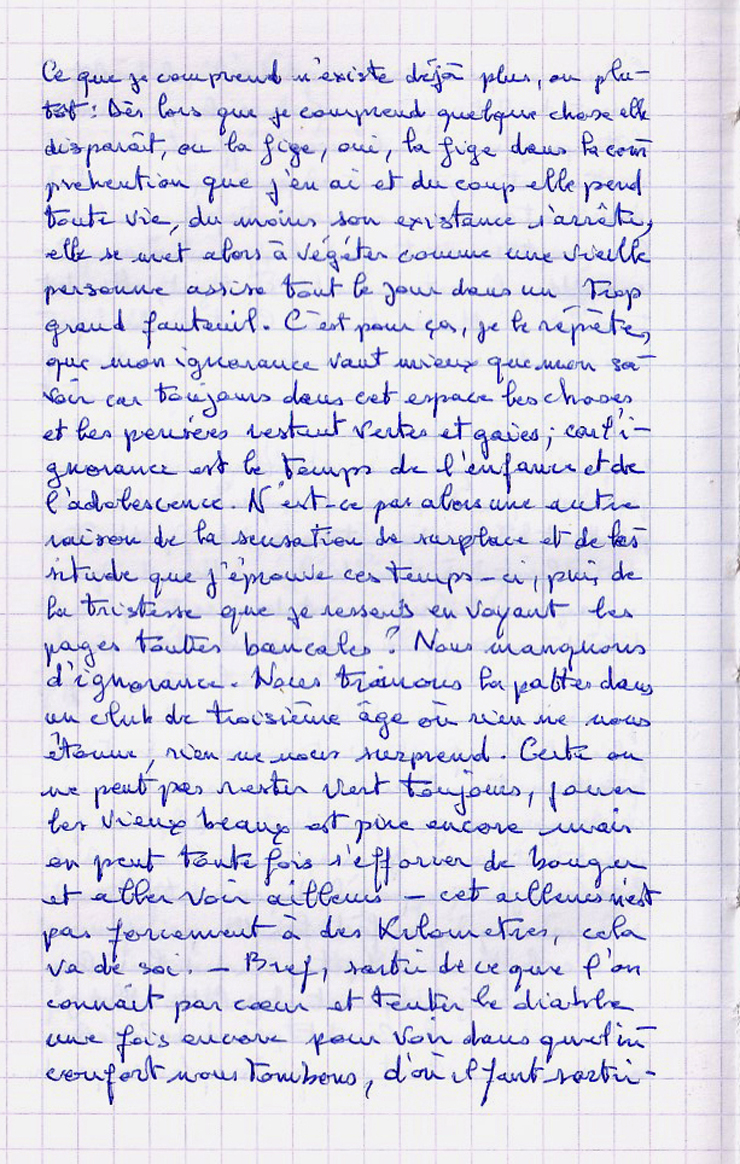 Ce que je comprend n'existe déjà plus, ou plu-
tôt : Dès lors que je comprend quelque chose elle
disparaît, ou la fige, oui, la fige dans la com
prehention que j'en ai et du coup elle pend
toute vie, du moins son existance s'arrête,
elle se met alors à végéter comme une vieille
personne assise tout le jour dans un trop
grand fauteuil. C'est pour ça, je le répète,
que mon ignorance vaut mieux que mon sa-
voir car toujours dans cet espace les choses
et les pensées restent vertes et gaies ; car l'i-
gnorance est le temps de l'enfance et de
l'adolescence. N'est-ce pas alors une autre
raison de la sensation de surplace et de las
situde que j'éprouve ces temps-ci, puis de
la tristesse que je ressens en voyant les
pages touttes bancales ? Nous manquons
d'ignorance. Nous traînons la pattes dans
un club de troisième âge où rien ne nous
étonne, rien ne nous surprend. Certe on
ne peut pas rester vert toujours, jouer
les vieux beaux est pire encore mais
on peut toute fois s'efforcer de bouger
et aller voir ailleurs – cet ailleurs n'est
pas forcement à des Kilometres, cela
va de soi. – Bref, sortir de ce que l'on
connaît par cœur et tenter le diable
une fois encore pour voir dans quel in
confort nous tombons, d'où il faut sortir-